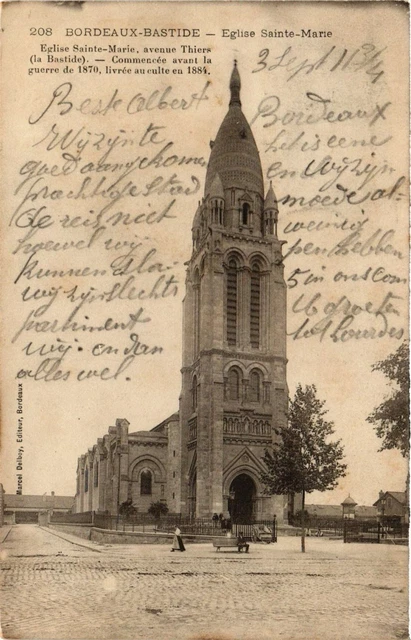 208 BORDEAUX-BASTIDE – Eglise Sainte-Marie
Eglise Sainte-Marie, avenue Thiers
(la Bastide). — Commencée avant la
guerre de 1870, livrée au culte en 1884.
3 Sept 11
Beste Albert
Wij zijn te
goed aangekomen
prachtige stad
de reis niet
hoewel wij
kunnen sla-
wij zijn slechts
partiment
wij en dan
alles wel.
Bordeaux
het is eene
en Wij zijn
moede al-
weinig
pen hebben
5 in ons Com
U groeten
tot Lourdes
Marcel Delboy, Editeur, Bordeaux